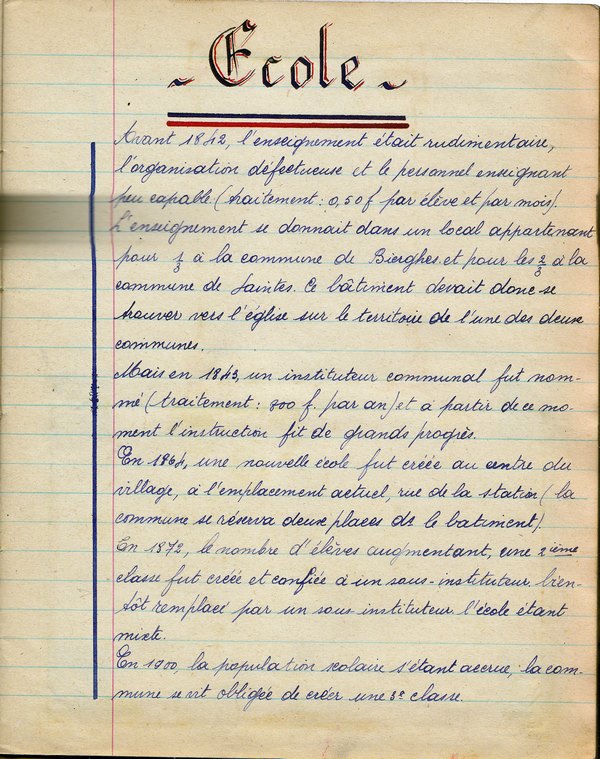 ~ Ecole ~
Avant 1842, l'enseignement était rudimentaire,
l'organisation défectueuse et le personnel enseignant
peu capable (traitement : 0,50 f par élève et par mois).
L'enseignement se donnait dans un local appartenant
pour 1/3 à la commune de Bierghes et pour les 2/3 à la
commune de Saintes. Ce bâtiment devait donc se
trouver vers l'église sur le territoire de l'une des deux
communes.
Mais en 1843, un instituteur communal fut nom-
mé (traitement : 800 f. par an) et à partir de ce mo-
ment l'instruction fit de grands progrès.
En 1864, une nouvelle école fut créée au centre du
village, à l'emplacement actuel, rue de la station (la
commune se réserva deux places de le batiment).
En 1872, le nombre d'élèves augmentant, une 2ième
classe fut créée et confiée à un sous-instituteur bien-
tôt remplacé par un sous-instituteur l'école étant
mixte.
En 1900, la population scolaire s'étant accrue, la com-
mune se vit obligée de créer une 3e classe.